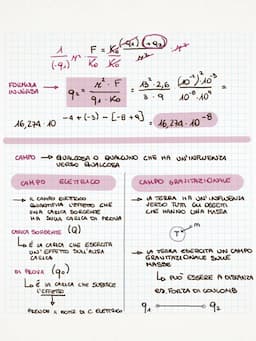 F = K₀ (-q₁) (+q₂)
FORMULA INVERSA → q₂ = r² · F / q₁ · K₀ = 13² · 2,6 / 3 · 9 (10⁻¹)² · 10⁻³ / 10⁻⁸ · 10⁹ =
16,274 · 10 ⁻⁴ ⁺ ⁽⁻³⁾ ⁻ [⁻⁸ ⁺ ⁹] = 16,274 · 10⁻⁸
CAMPO → QUALCOSA O QUALCUNO CHE HA UN'INFLUENZA
VERSO QUALCOSA
CAMPO ELETTRICO
→ IL CAMPO ELETTRICO
QUANTIFICA L'EFFETTO CHE
UNA CARICA SORGENTE
HA SULLA CARICA DI PROVA
CARICA SORGENTE (Q)
↳ È LA CARICA CHE ESERCITA
UN'EFFETTO SULL'ALTRA
CARICA
DI PROVA (q₀)
↳ È LA CARICA CHE SUBISCE
L'EFFETTO
PRENDE IL NOME DI C. ELETTRICO
CAMPO GRAVITAZIONALE
→ LA TERRA HA UN'INFLUENZA
VERSO TUTTI GLI OGGETTI
CHE HANNO UNA MASSA
T m
→ LA TERRA ESERCITA UN CAMPO
GRAVITAZIONALE SULLE
MASSE
↳ PUÒ ESSERE A DISTANZA
ES. FORZA DI COULOMB
q₁ q₂